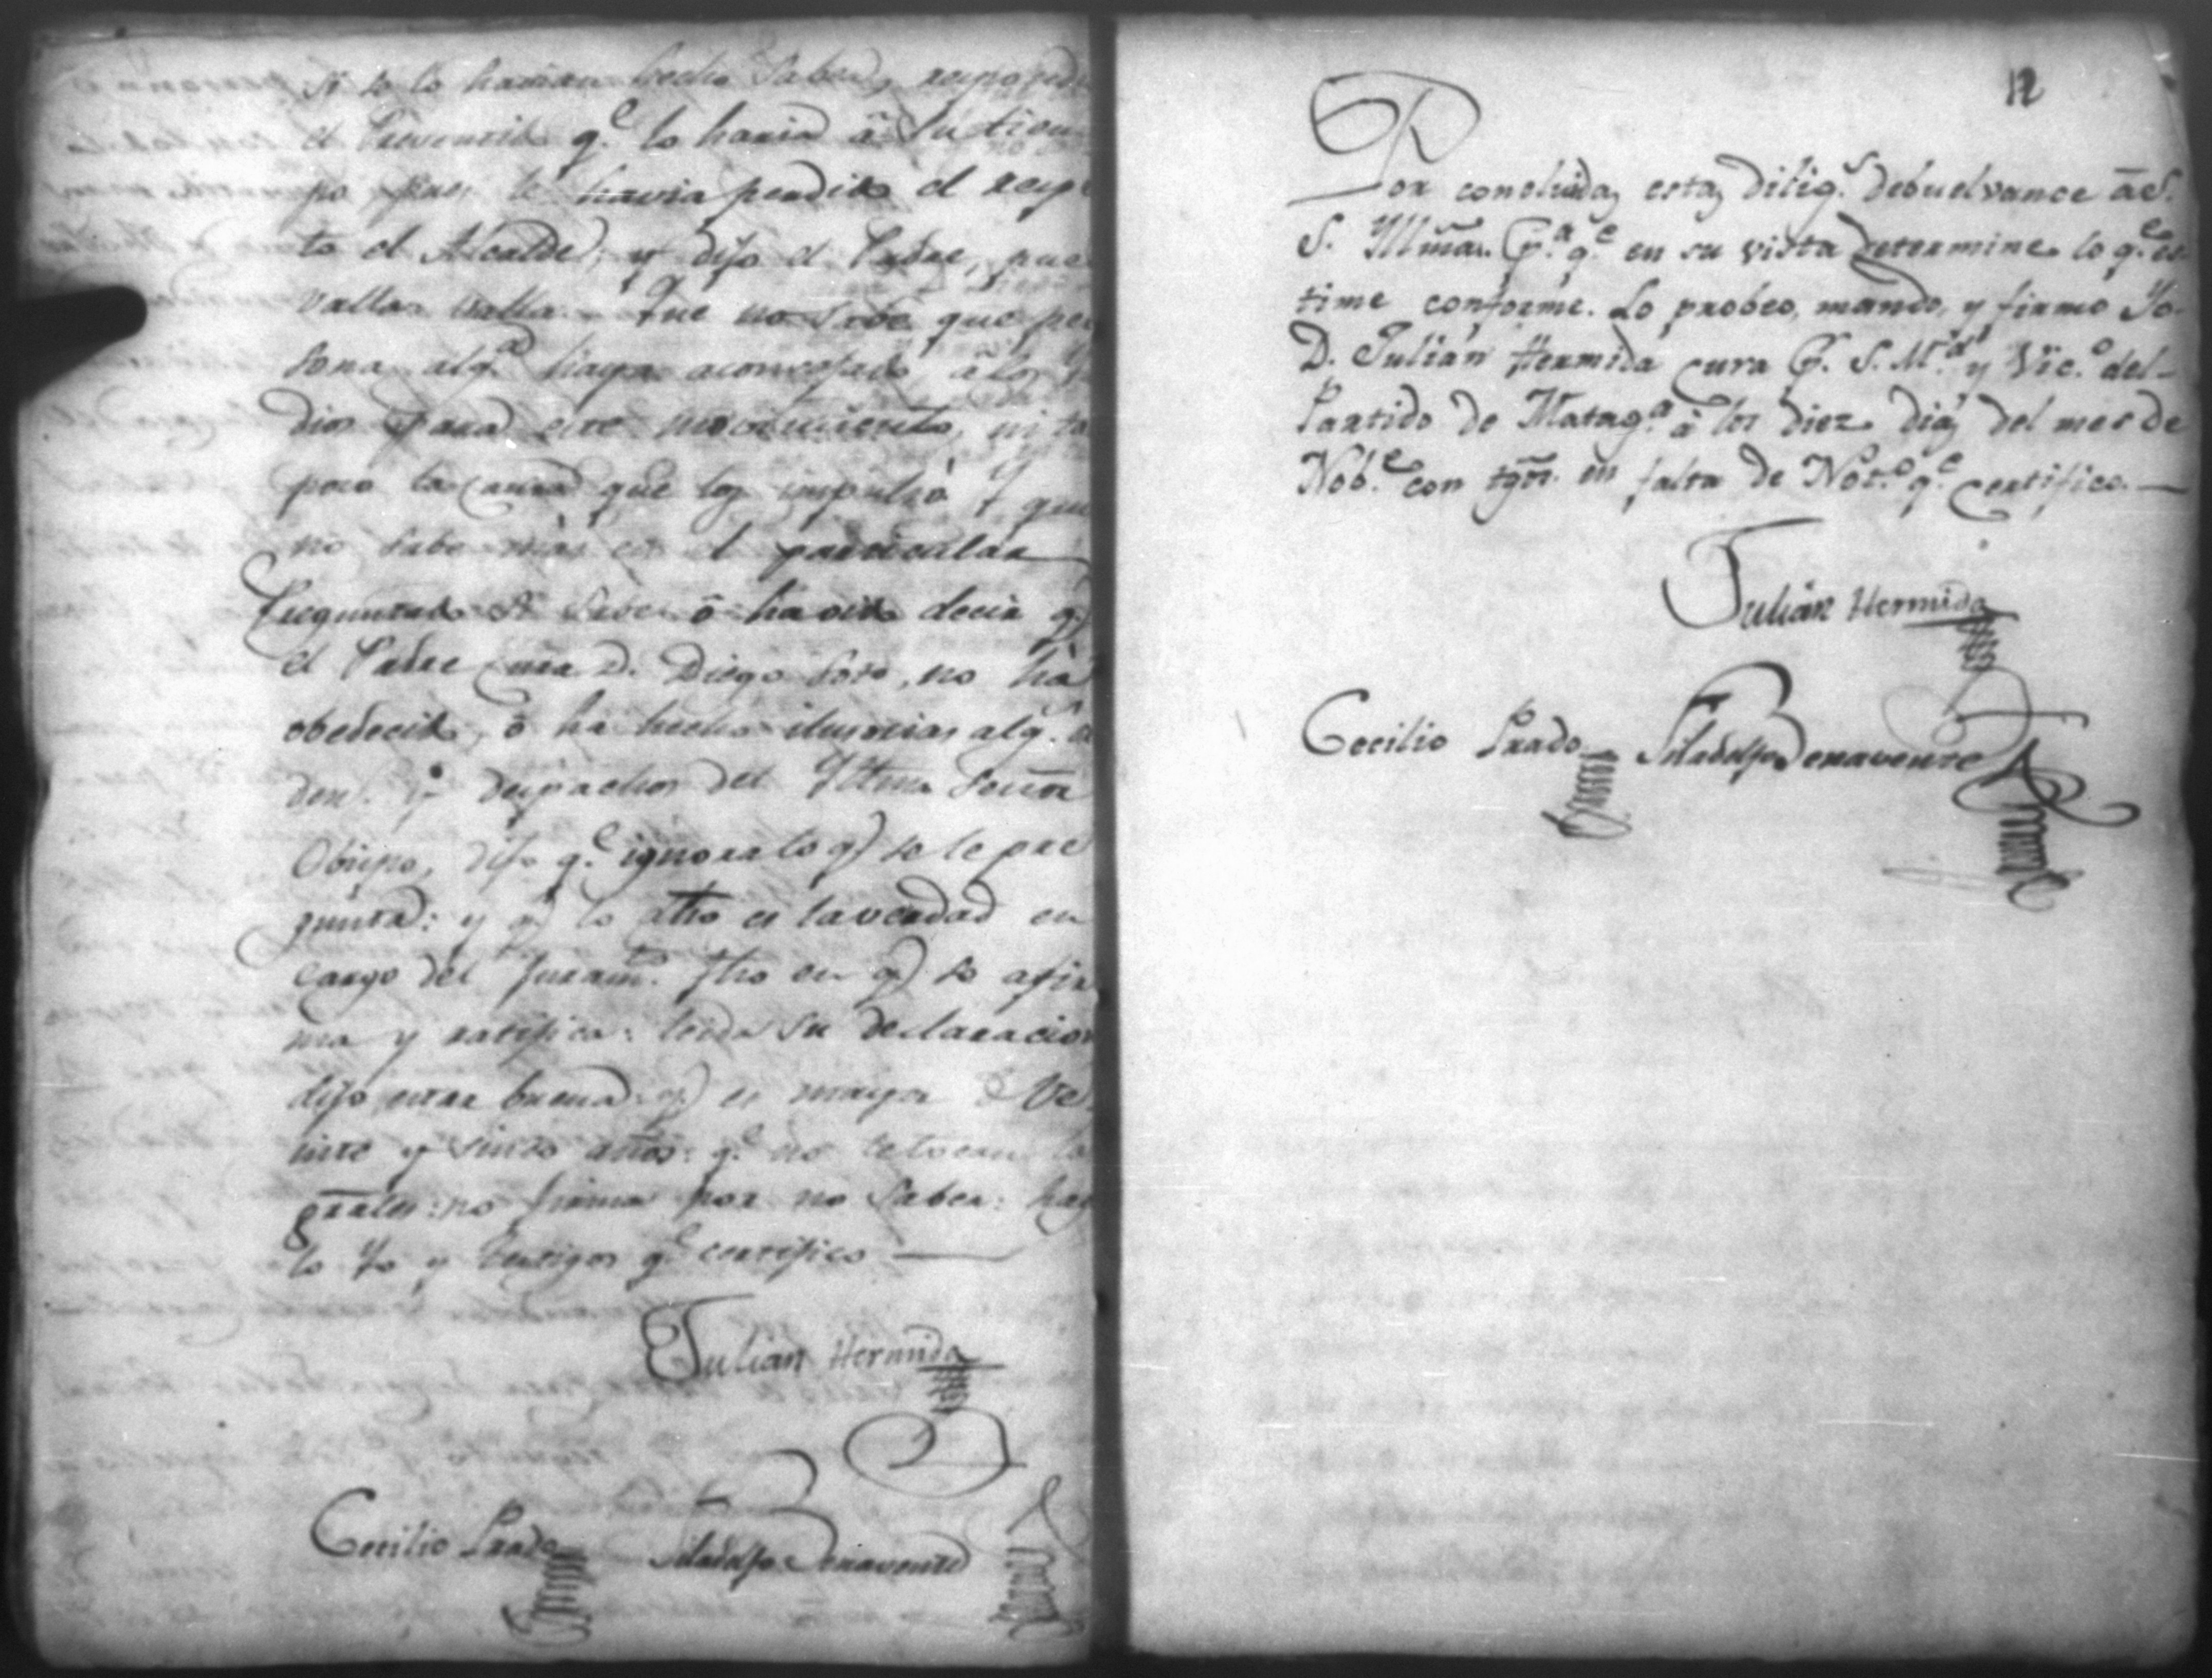 si se lo havian hecho saber, respondió
el Preventide q.e lo haria â su tiem
po pues le havia perdido el resp
to el Alcalde; y dijo el Padre, pue
valla valla. Que no sabe que per
sona alg.a haya aconsejado â los Yn
dios para este movimiento, ni ta
poco la causa que los impulsó y que
no sabe mas en el particular
Preguntado si sabe ô ha oido decir q.e
el Padre Cura D. Diego Soto, no hà
obedecido, ô ha hecho ilusorias alg.s or
den.s y despachos del Yltmo Señor
Obispo, dijo q.e ignora lo q.e se le pre
gunta: y q.e lo dho es la verdad en
cargo del juram.to fho en q.e se afir
ma y ratifica: leida su declaracion
dijo estar buena: q.e es mayor de ve
inte y sinco años: q.e no le tocan la
grales: no firma por no saber: hag
lo Yo y testigos q.e certifico —
Julian Hermida
Cecilio Prado Filadelfo Benavente
12
Por concluidas estas dilig.s debuelvance â S.
S. Yllmâ. P.a q.e en su vista determine lo q.e es
time conforme. Lo probeo, mando, y firmo Yo
D. Julián Hermida cura P. S. M.d y Vic.o del
Partido de Matag.a â los diez dias del mes de
Nob.e con tgôs. en falta de Not.o q.e certifico. —
Julián Hermida
Cecilio Prado Filadelfo Benavente